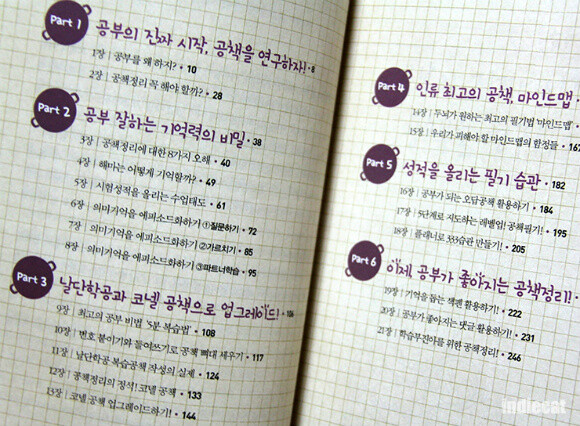 Part 1
공부의 진짜 시작, 공책을 연구하자! • 8
1장 | 공부를 왜 하지? • 10
2장 | 공책정리 꼭 해야 할까? • 28
Part 2
공부 잘하는 기억력의 비밀 • 38
3장 | 공책정리에 대한 8가지 오해 • 40
4장 | 해마는 어떻게 기억할까? • 49
5장 | 시험성적을 올리는 수업태도 • 61
6장 | 의미기억을 에피소드화하기 ①질문하기 • 72
7장 | 의미기억을 에피소드화하기 ②가르치기 • 85
8장 | 의미기억을 에피소드화하기 ③파트너학습 • 95
Part 3
날단학공과 코넬 공책으로 업그레이드! • 106
9장 | 최고의 공부 비법 '5분 복습법' • 108
10장 | 번호 붙이기와 들여쓰기로 공책 뼈대 세우기 • 117
11장 | 날단학공 복습공책 작성의 실제 • 124
12장 | 공책정리의 정석! 코넬 공책 • 133
13장 | 코넬 공책 업그레이드하기! • 144
Part 4
인류 최고의 공책, 마인드맵 •
14장 | 두뇌가 원하는 최고의 필기법 '마인드맵' •
15장 | 우리가 피해야 할 마인드맵의 함정들 • 167
Part 5
성적을 올리는 필기 습관 • 182
16장 | 공부가 되는 오답공책 활용하기 • 184
17장 | 5단계로 지도하는 레벨업! 공책필기! • 195
18장 | 플래너로 333습관 만들기! • 205
Part 6
이제, 공부가 좋아지는 공책정리! •
19장 | 기억을 돕는 책펜 활용하기! • 222
20장 | 공부가 좋아지는 댓글 활용하기! • 231
21장 | 학습부진아를 위한 공책정리! • 246
indiecat